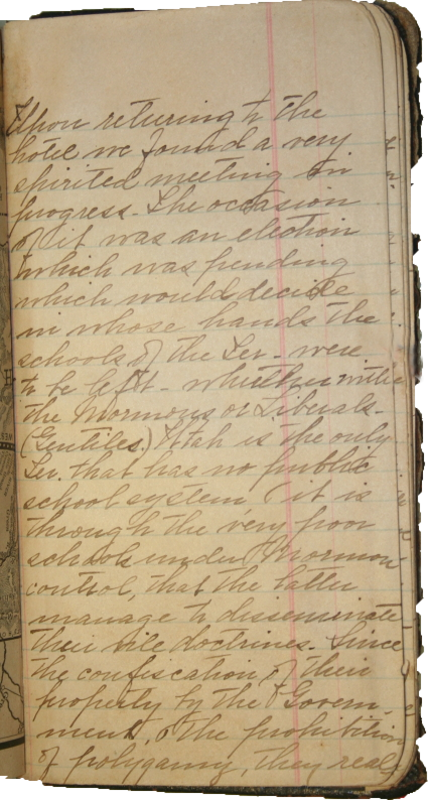 Upon returning to the
hotel we found a very
spirited meeting in
progress. The occasion
of it was an election
which was pending
which would decide
in whose hands the
schools of the Ter. were
to be left - whether with
the Mormons or Liberals -
(Gentiles.) Utah is the only
Ter. that has no public
school system & it is
through the very poor
schools under Mormon
control, that the latter
manage to disseminate
their vile doctrines. Since
the confiscation of their
property by the Govern-
ment, & the prohibition
of polygamy, they real